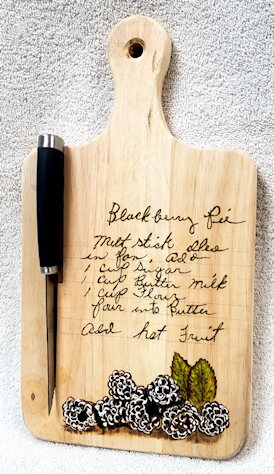 Blackberry Pie
Melt stick oleo
in pan, add
1 cup sugar
1 cup Butter milk
1 cup Flour
pour into Butter
Add hot Fruit